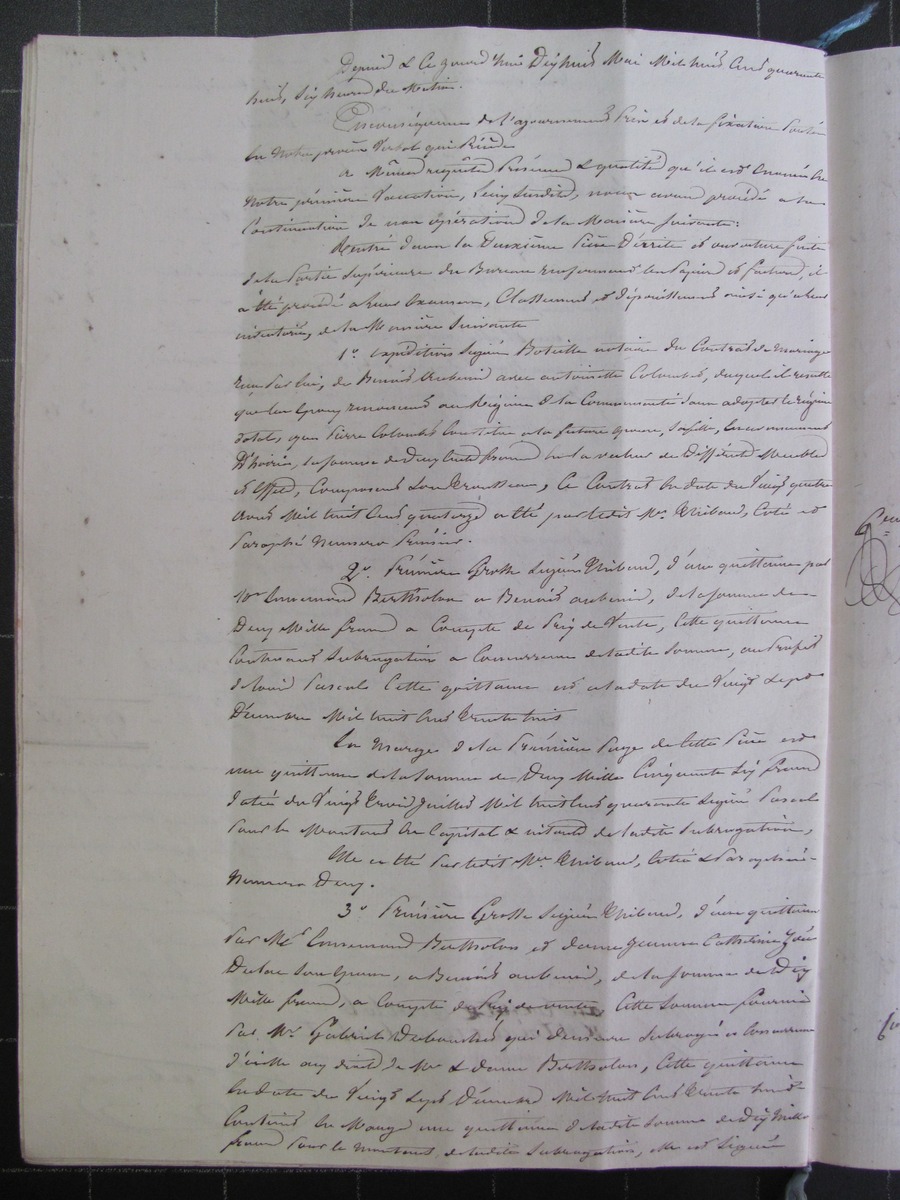 Depuis & ce jourd'hui Dix huit Mai Mil huit Cent quarante
huit, Six heures du Matin.
En conséquence de l'ajournement Pris et de la fixation Portée
En Notre procès Verbal qui Précède
a Mêmes requête Présence & qualités qu'il est énoncé En
Notre première Vacation, nous avons procédé a la
Continuation de nos opérations de la Manière Suivante:
Rentré dans la Deuxième Pièce et ouverture faite
de la Partie Supérieure du Bureau renfermant les Papiers et factures, il
a été procédé a leur Examen, Classement et dépouillement ainsi qu'a leur
inventaire, de la Manière Suivante
1° Expédition Signée notaire du Contrat de Mariage
reçu Par lui, de Benoit Aubenis avec antoinette Colombet, duquel il résulte
que les Epoux renoncent au Régime de la Communauté Pour adopter le régime
dotal, que Pierre Colombet Constitue a la future épouse, Sa fille, En avancement
D'hoirie, la Somme de Deux Cents francs En la valeur de Différents Meubles
et Effets, Composant Son trousseau, Ce Contrat En date du Vingt quatre
Mil huit Cent quatorze a été par ledit Me Thibaud, Coté et
Paraphé Numero Premier.
2° Première Grosse Signée Thibaud, d'une quittance par
Mr Ennemond Bertholon a Benoit aubenis, de la Somme de
Deux Mille francs a Compte de Prix de Vente, Cette quittance
Contenant Subrogation a Concurrence de ladite Somme, au Profit
de Louis Pascals Cette quittance est a la date du Vingt Sept
Décembre Mil huit Cent trente huit
En Marge de la Première Page de Cette Pièce est
une quittance de la Somme de Deux Mille Cinquante Six francs
datée du Vingt trois Juillet Mil huit Cent quarante Signée Pascals
Pour le Montant En Capital & intérêts de ladite Subrogation,
Elle a été Par ledit Me Thibaud, Cotée & Paraphée
Numero Deux.
3° Première Grosse Signée Thibaud, d'une quittance
Par Mr Ennemond Bertholon et dame Jeanne Catherine
Son Epouse, a Benoit aubenis, de la Somme de Dix
Mille francs, a Compte de Prix de vente, Cette Somme fournie
Par Mr Gabriel qui Demeure Subrogé a Concurrence
d'icelle aux droits de Mr & dame Bertholon, Cette quittance
En date du Vingt Sept Décembre Mil huit Cent trente huit
Contient En Marge une quittance de ladite Somme de Dix Mille
francs Pour le Montant de ladite Subrogation, Elle est Signée